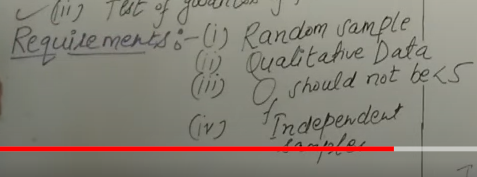 (ii) Test of
Requirements:-(i) Random sample
(ii) Qualitative Data
(iii) O should not be < 5
(iv) Independent
samples